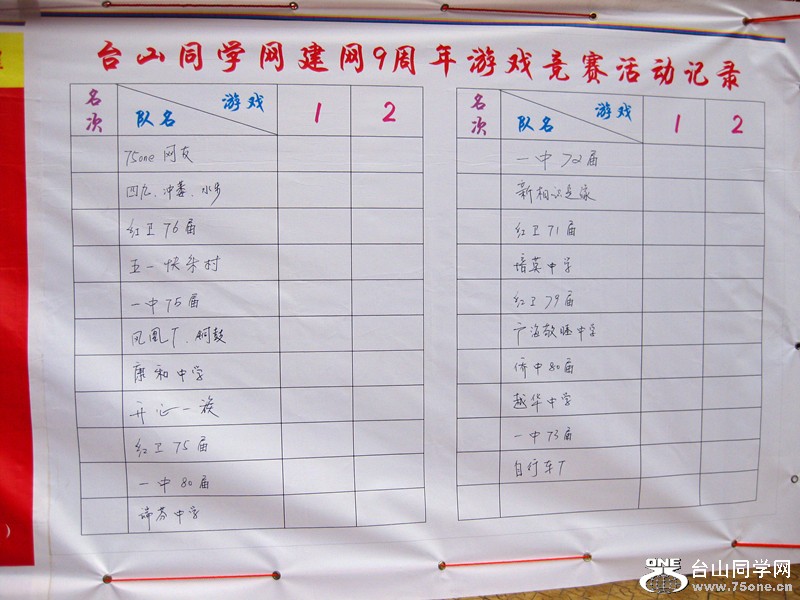 台山同学网建网9周年游戏竞赛活动记录
名次 队名 游戏 1 2
75one 网友
四九、冲蒌、水步
红卫76届
五一快乐村
一中75届
凤凰T、铜鼓
康和中学
开心一族
红卫75届
一中80届
端芬中学
名次 队名 游戏 1 2
一中72届
新相识是缘
红卫71届
培英中学
红卫79届
宁海敬修中学
侨中80届
越华中学
一中73届
自行车T
ONE
75
台山同学网
www.75one.cn